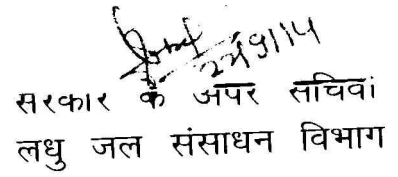 22/9/14
सरकार के अपर सचिव।
लधु जल संसाधन विभाग